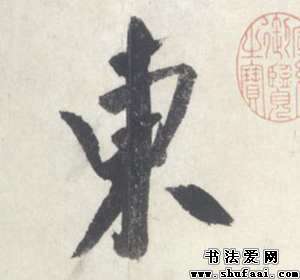 東
御覽之寶
书法爱网
www.shufaai.com